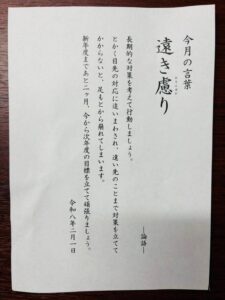 今月の言葉
遠き慮り
―論語―
長期的な対策を考えて行動しましょう。
とかく目先の対応に追いまわされ、遠い先のことまで対策を立てて
かからないと、足もとから崩れてしまいます。
新年度まであと二ヶ月、今から次年度の目標を立てて頑張りましょう。
令和八年二月一日